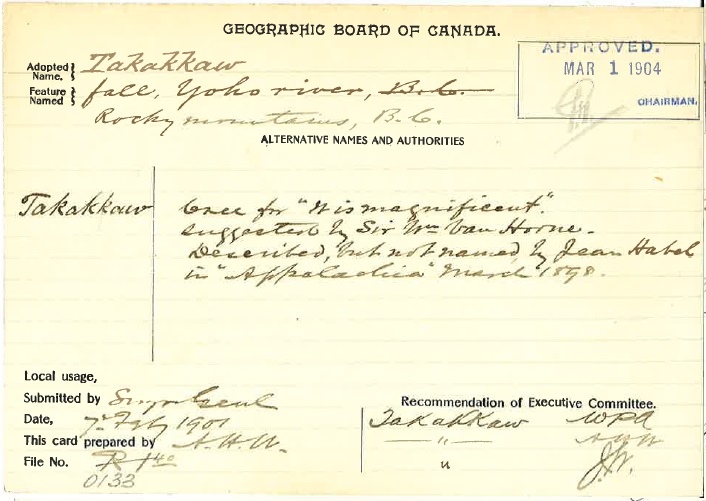 GEOGRAPHIC BOARD OF CANADA.
Adopted Name. Takakkaw
Feature Named fall, Yoho river, B.C.
Rocky mountains, B.C.
APPROVED.
MAR 1 1904
CHAIRMAN.
ALTERNATIVE NAMES AND AUTHORITIES
Takakkaw Cree for "It is magnificent".
suggested by Sir Wm Van Horne.
Described, but not named, by Jean Habel
in "Appalachia" March 1898.
Local usage,
Submitted by
Date, 7 Feby 1901
This card prepared by A.H.W.
File No.
0133
Recommendation of Executive Committee.
Takakkaw WPA
" AHW
"